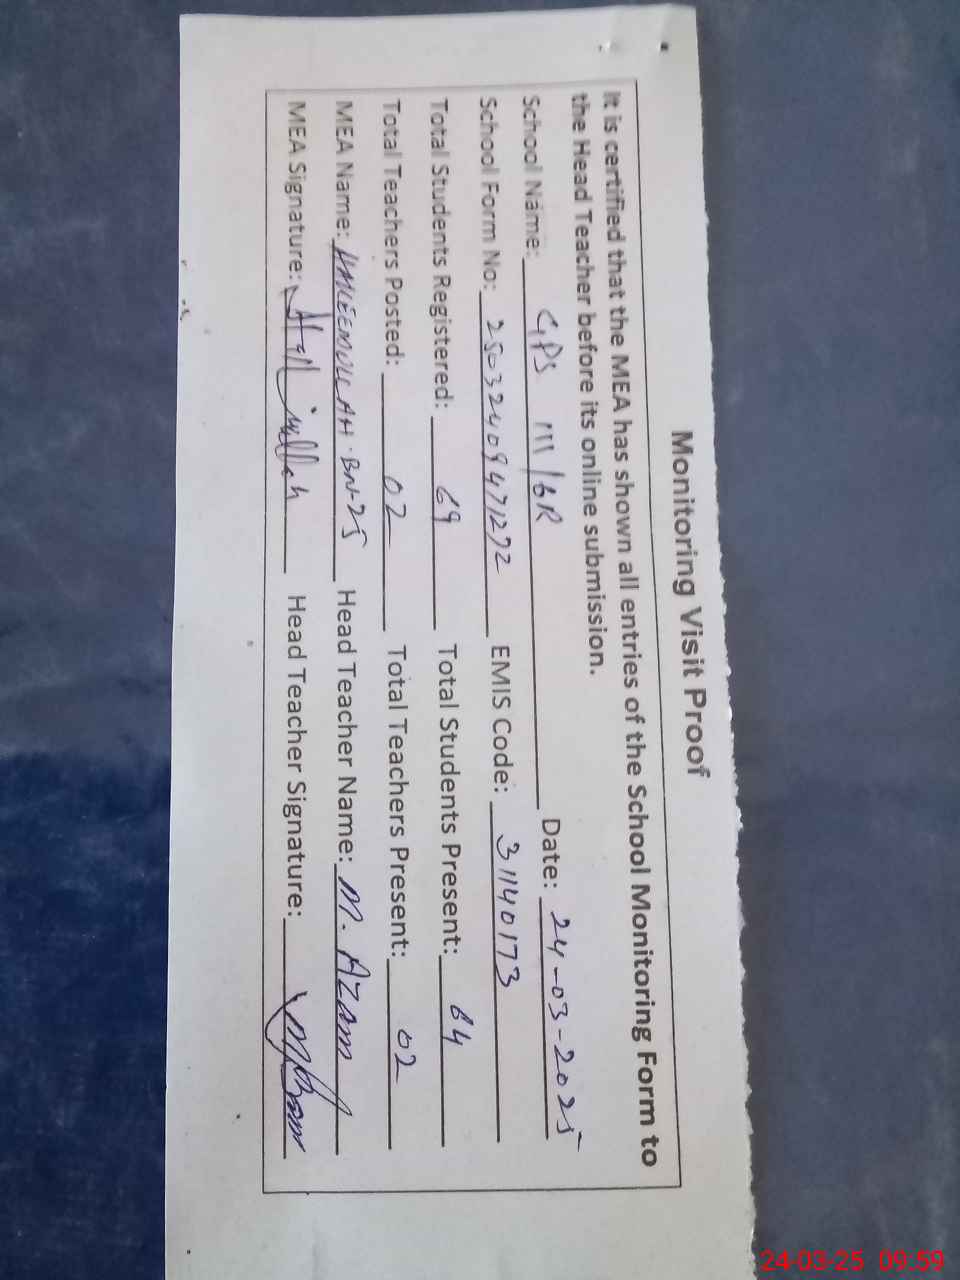 Monitoring Visit Proof
It is certified that the MEA has shown all entries of the School Monitoring Form to
the Head Teacher before its online submission.
School Name: GPS 111/6R Date: 24-03-2025
School Form No: 25032409471292 EMIS Code: 31140173
Total Students Registered: 69 Total Students Present: 64
Total Teachers Posted: 02 Total Teachers Present: 02
MEA Name: HALEEMULLAH. BN-25 Head Teacher Name: M. Azam
MEA Signature: Head Teacher Signature:
24-03-25 09:59